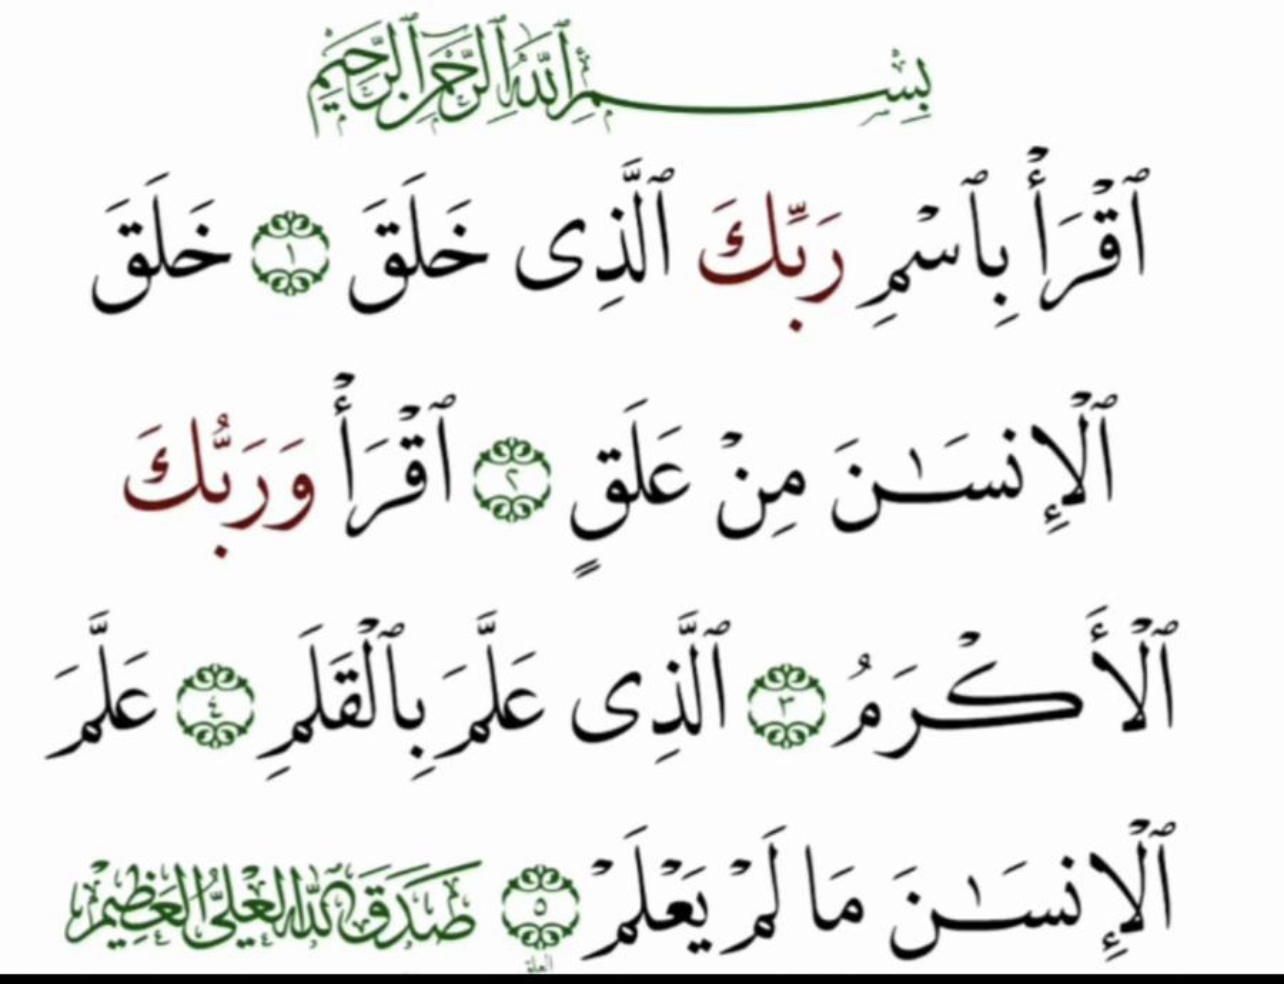 بِسْمِ ٱللَّهِ ٱلرَّحْمَٰنِ ٱلرَّحِيمِ
ٱقْرَأْ بِٱسْمِ رَبِّكَ ٱلَّذِى خَلَقَ ١ خَلَقَ
ٱلْإِنسَـٰنَ مِنْ عَلَقٍ ٢ ٱقْرَأْ وَرَبُّكَ
ٱلْأَكْرَمُ ٣ ٱلَّذِى عَلَّمَ بِٱلْقَلَمِ ٤ عَلَّمَ
ٱلْإِنسَـٰنَ مَا لَمْ يَعْلَمْ ٥ صَدَقَ ٱللَّهُ ٱلْعَلِىُّ ٱلْعَظِيمْ
العلق